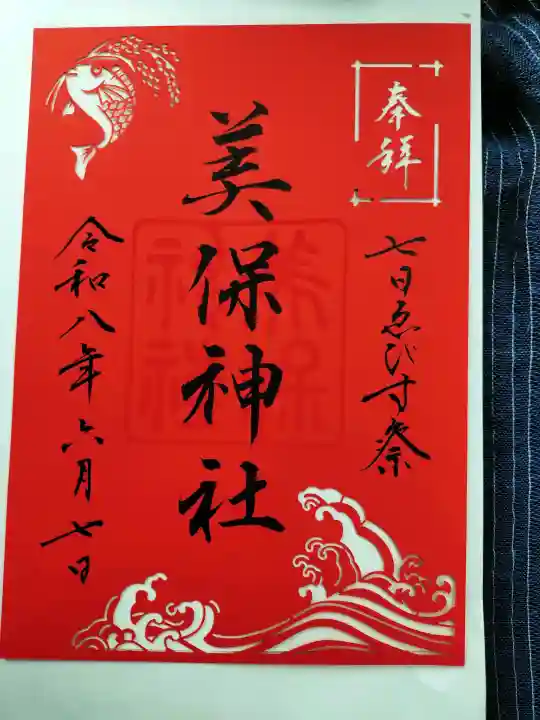 奉拝
七日ゑびす祭
美保神社
美保神社
令和八年六月七日